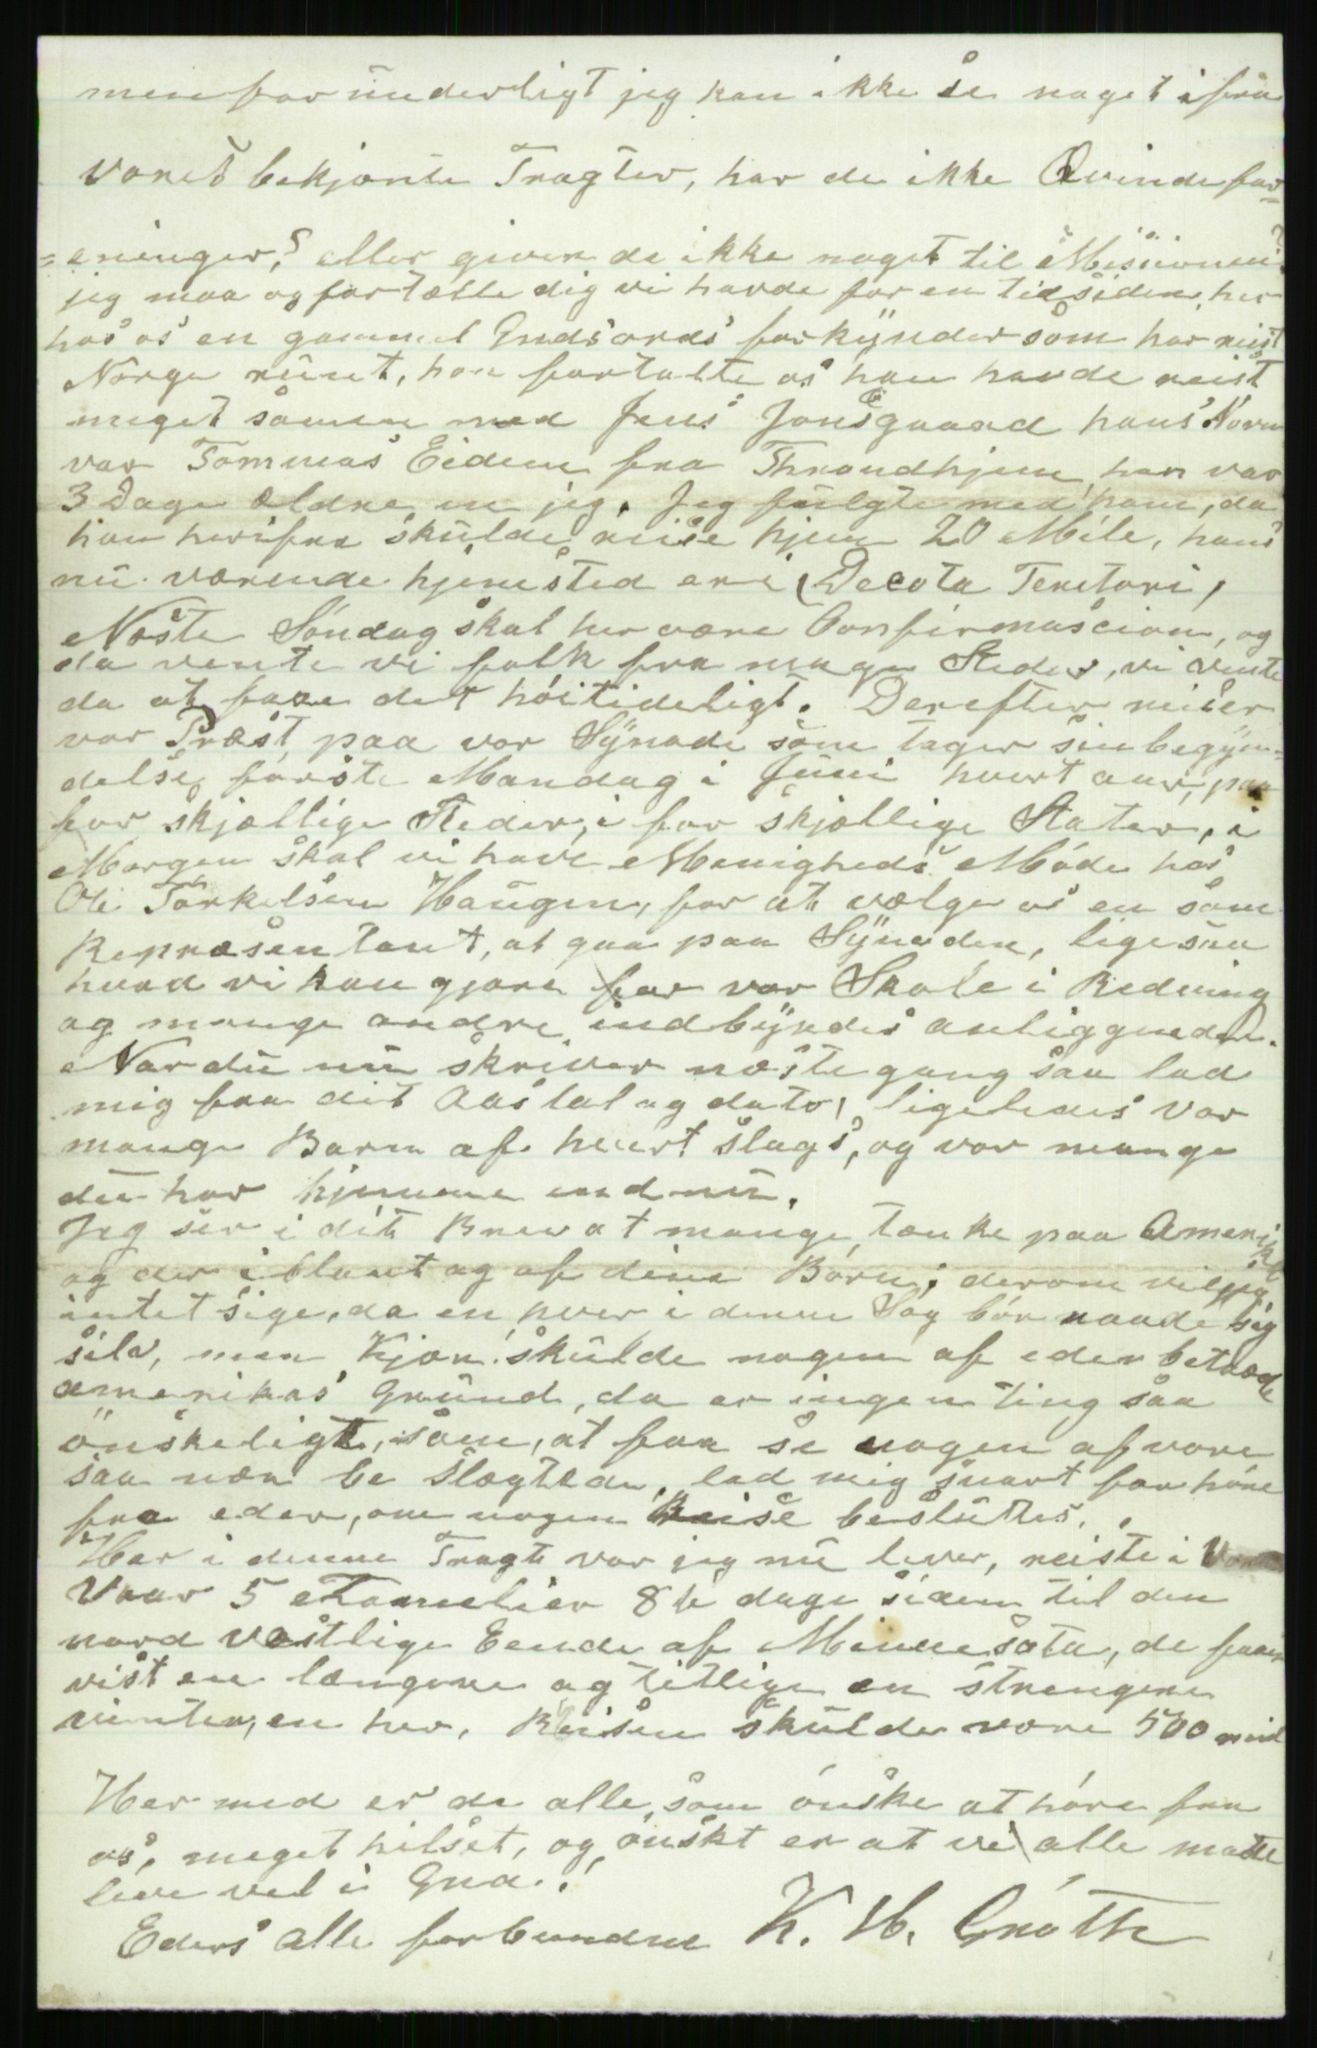 men forunderligt jeg kan ikke se noget ifra
voret bekjente Tragter, har de ikke Qvindefor-
=eninger,? eller giver de ikke noget til Missionen?
jeg maa og fortælle dig vi havde for en tid siden her
hos os en gammel Gudsords forkÿnder som har reist
Norge runt, han fortalte os han havde reist
meget samen med Jens Jonsgaard hans Navn
var Tommas Eidem fra Throndhjem han var
3 Dage Ældre en jeg. Jeg fulgte med ham, da
han herifra skulde reise hjem 20 Mile, hans
nu værende hjemsted er i Decota Teretori,
Næste Söndag skal her være Confirmascion, og
da vente vi folk fra mange Steder, vi vente
da at faae det höitideligt. Derefter reiser
vor Præst paa vor Sÿnode som tager sin begÿn=
delse förste Mandag i Juni hvert aar, paa
for skjællige Steder, i for skjællige Stater, i
Morgen skal vi have Menigheds Möde hos
Ole Torkelsen Haugen, for at vælge os en som
Repræsentant, at gaa paa Sÿnoden, ligesaa
hvad vi kan gjøre for vor Skole i Redwing
og mange andre indbÿrdes anliggender.
Nar du nu skriver næste gang saa lad
mig faa dit Aastal og dato, ligeledes vor
mange Barn af hvert slags, og vor mange
du har hjemme end nu.
Jeg ser i dit Brev at mange tænke paa Amerika
og der i blant og af dine Börn; derom vil jeg
intet sige, da en hver i denne Sag bör raade sig
selv, men Kjære skulde nogen af eder betræde
amerikas Grund, da er ingen ting saa
önskeligt, som, at faa se nogen af vore
saa nær be slægtede, lad mig snart faa höre
fra eder, om nogen Reise besluttes.
Her i denne Tragt vor jeg nu lever, reiste i
Vaar 5 Familier 8te dage siden til den
nord vestlige Eende af Minnesota, de faar
vist en længere og titlige en strengere
vinter, en her, Reisen skulde være 500 mil
Her med er da alle, som önske at höre fra
os, meget hilset, og önskt er at vi alle matte
leve vel i Gud.!
Eders alle forbundne K. H. Gröth